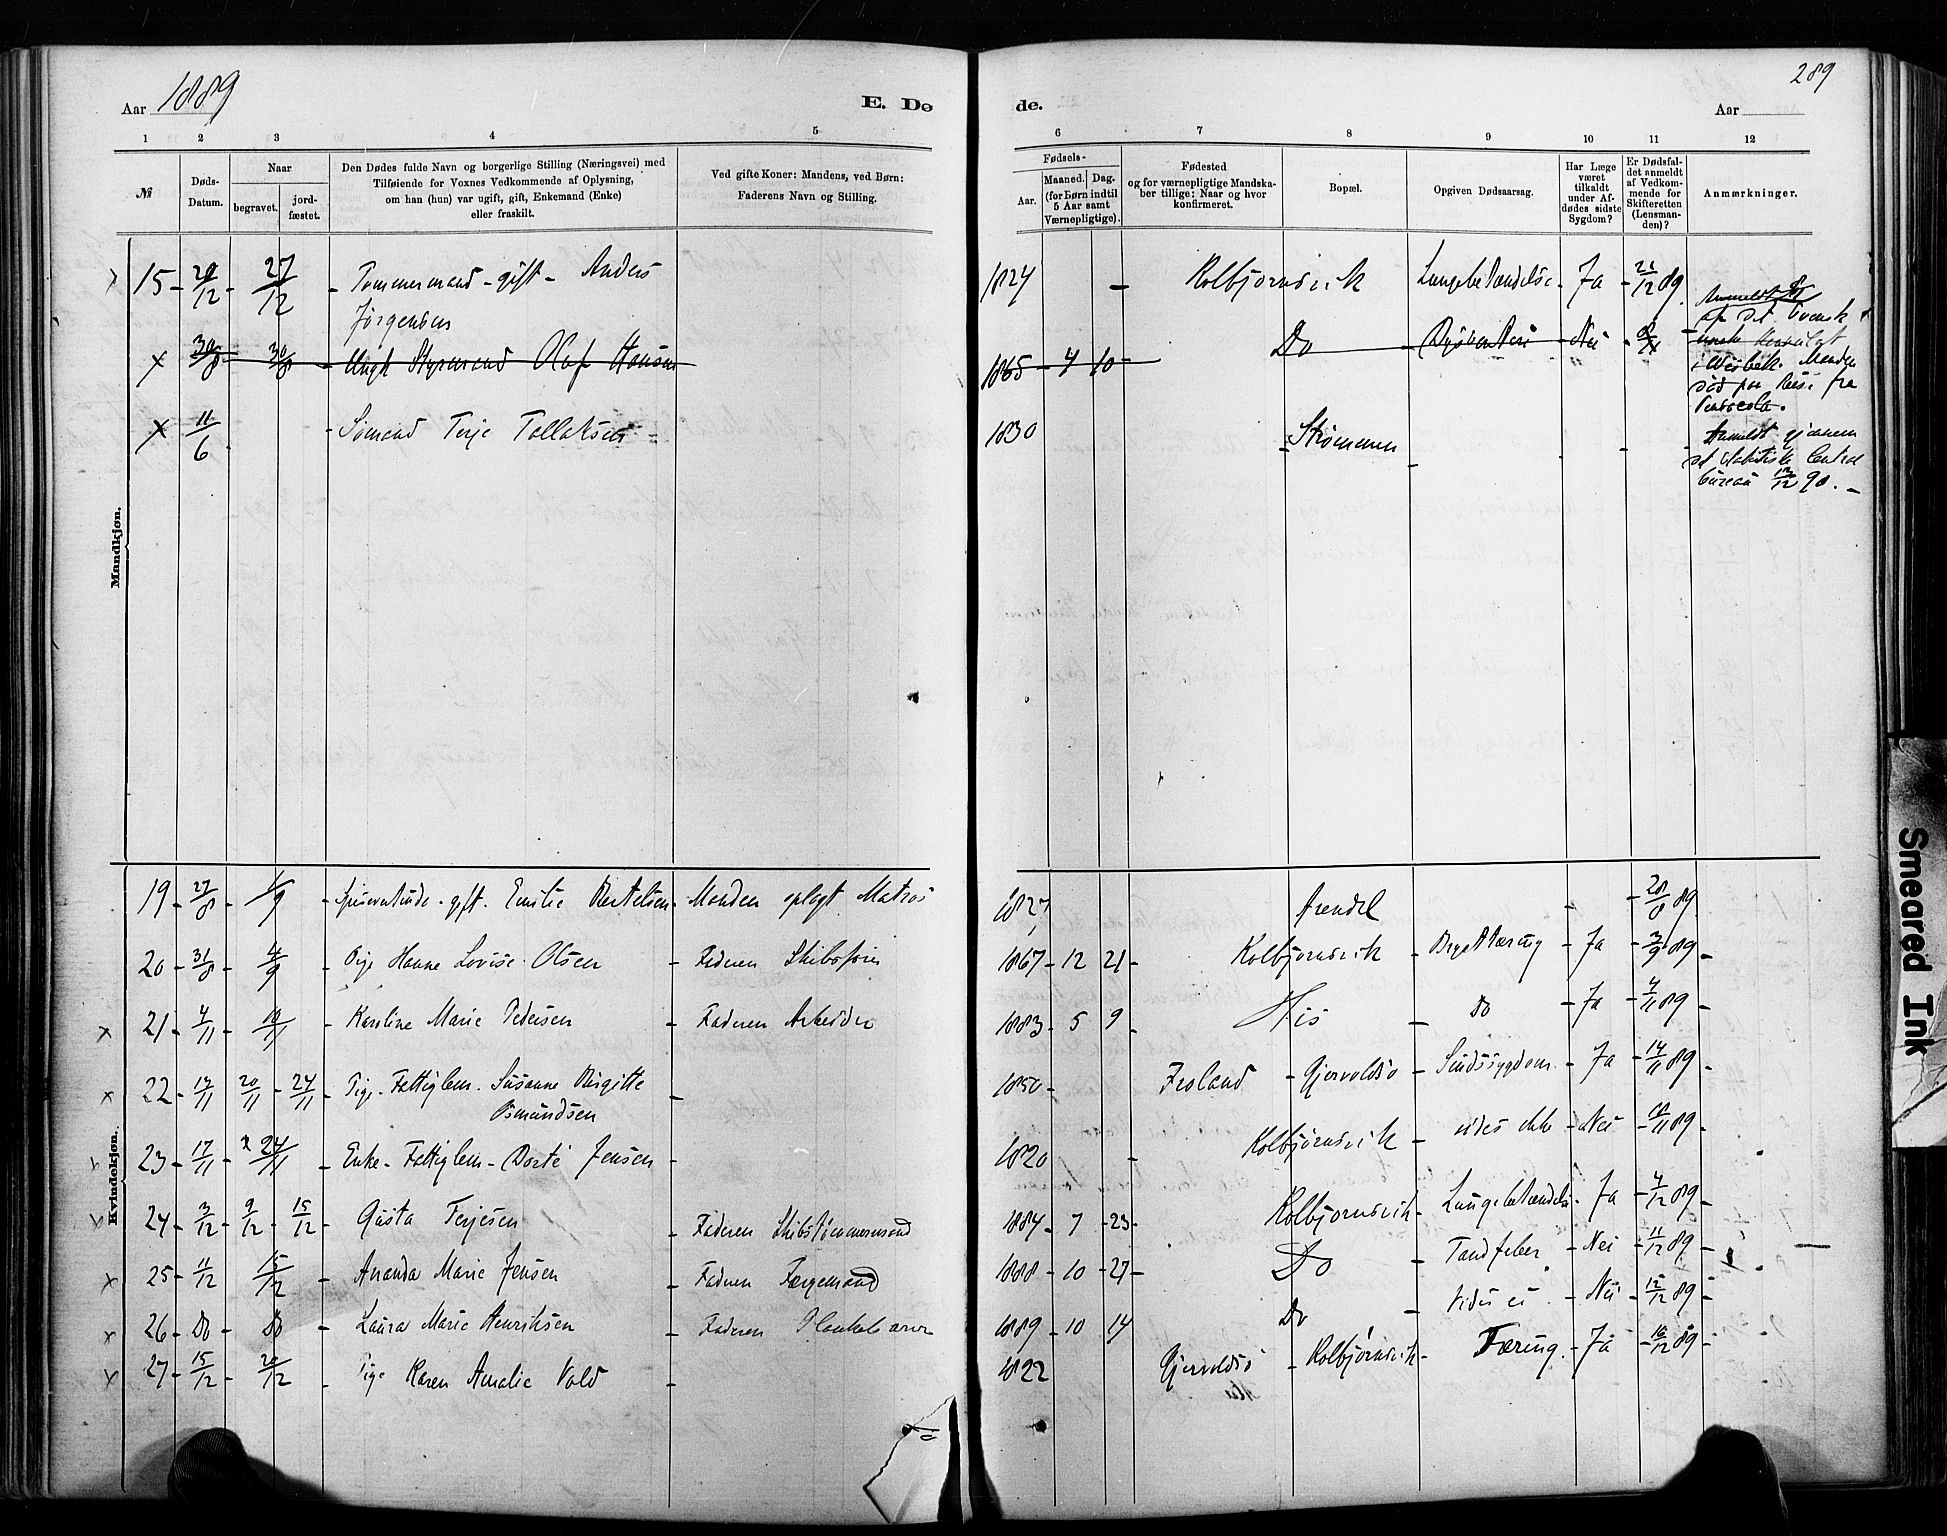 Aar 1889
E. Dø
de.
Aar
289
1 2 3 4 5 6 7 8 9 10 11 12
№
Døds-
Datum.
Naar
begravet.
jord-
fæstet.
Den Dødes fulde Navn og borgerlige Stilling (Næringsvei) med
Tilføiende for Voxnes Vedkommende af Oplysning,
om han (hun) var ugift, gift, Enkemand (Enke)
eller fraskilt.
Ved gifte Koner: Mandens, ved Børn:
Faderens Navn og Stilling.
Fødsels-
Aar.
Maaned. Dag.
(for Børn indtil
5 Aar samt
Værnepligtige).
Fødested
og for værnepligtige Mandska-
ber tillige: Naar og hvor
konfirmeret.
Bopæl.
Opgiven Dødsaarsag.
Har Læge
været
tilkaldt
under Af-
dødes sidste
Sygdom?
Er Dødsfal-
det anmeldt
af Vedkom-
mende for
Skifteretten
(Lensman-
den)?
Anmærkninger.
Mandkjøn.
15 - 20/12 - 27/12 - Tømmermand - gift - Anders
Jørgensen
1824 - Kolbjornsvik Lungebetændelse - Ja - 21/12 89.
x 30/8 - 30/8 - Ungk Styrmand Olaf Hansen
1865 - 4 10 - Do - Dysenteri - Nei
Anmeldt
af det svensk
norsk Konsulat
i Wisbek. Manden
død paa Reise fra
Pensacola.
x 11/6 - Sømand Terje Tallaksen -
1830 - Strømmen - - -
Anmeldt gjennem
det statistisk Central
bureau 12/12 90. -
Kvindekjøn.
19 - 27/8 - 1/9 - gift. Emilie Bertelsen - Manden oplagt Matros
1827 Arendal - - 28/8 89.
20 - 31/8 - 4/9 - Pige Hanne Lovise Olsen - Faderen Skibsfører
1867 - 12 21 - Kolbjornsvik - Brysttæring - Ja - 3/9 89 -
x 21 - 4/11 - 10/11 - Karoline Marie Pedersen - Faderen Arbeider
1883 - 5 9 - His - Do - Ja - 4/11 89 -
x 22 - 12/11 20/11 - 24/11 - Pige - Fattiglem. Susanne Birgitte
Osmundsen -
1850 - Froland - Gjervoldsø - Sindssygdom. - Ja - 14/11 89 -
23 - 17/11 - x 24/11 - Enke - Fattiglem - Dorte Jensen -
1820 - Kolbjørnsvik - vides ikke - Nei - 18/11 89
x 24 - 3/12 - 9/12 - 15/12 - Gusta Terjesen - Faderen Skibstømmermand
1884 - 7 - 23 - Kolbjornsvik - Lungebetændelse - Ja - 4/12 89 -
x 25 - 11/12 15/12 - Ananda Marie Jensen - Faderen Færgemand
1888 - 10 - 27 - Do - Tandfeber - Nei - 11/12 89 -
x 26 - Do - Do - Laura Marie Henriksen - Faderen
1889 - 10 14 Do - Vides ei. - Nei - 12/12 89 -
x 27 - 15/12 - 20/12 - Pige Karen Amalie Vold -
1822 Gjervoldsø - Kolbjørnsvik - Tæring. - Ja - 16/12 89 -
Smeared Ink